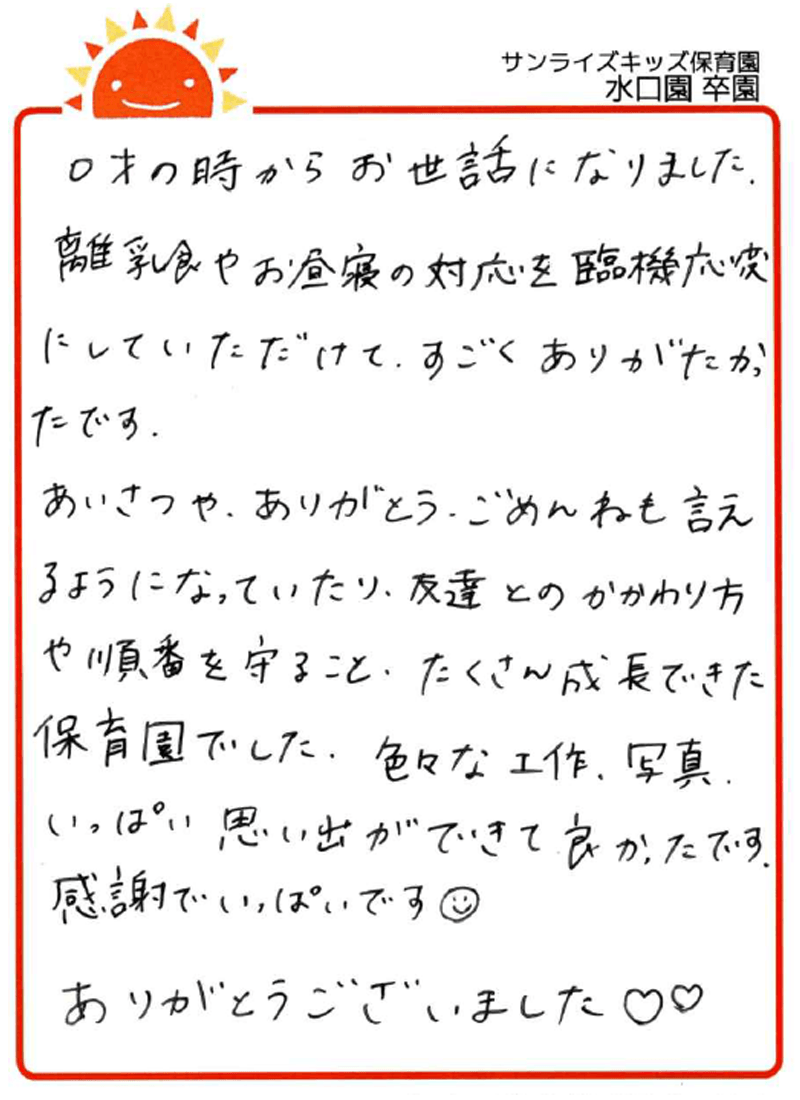 サンライズキッズ保育園
水口園 卒園
0才の時からお世話になりました.
離乳食やお昼寝の対応を臨機応変
にしていただけて、すごくありがたかっ
たです.
あいさつや、ありがとう、ごめんねも言え
るようになっていたり、友達とのかかわり方
や順番を守ること、たくさん成長できた
保育園でした. 色々な工作、写真、
いっぱい思い出ができて良かったです.
感謝でいっぱいです☺
ありがとうございました♡♡